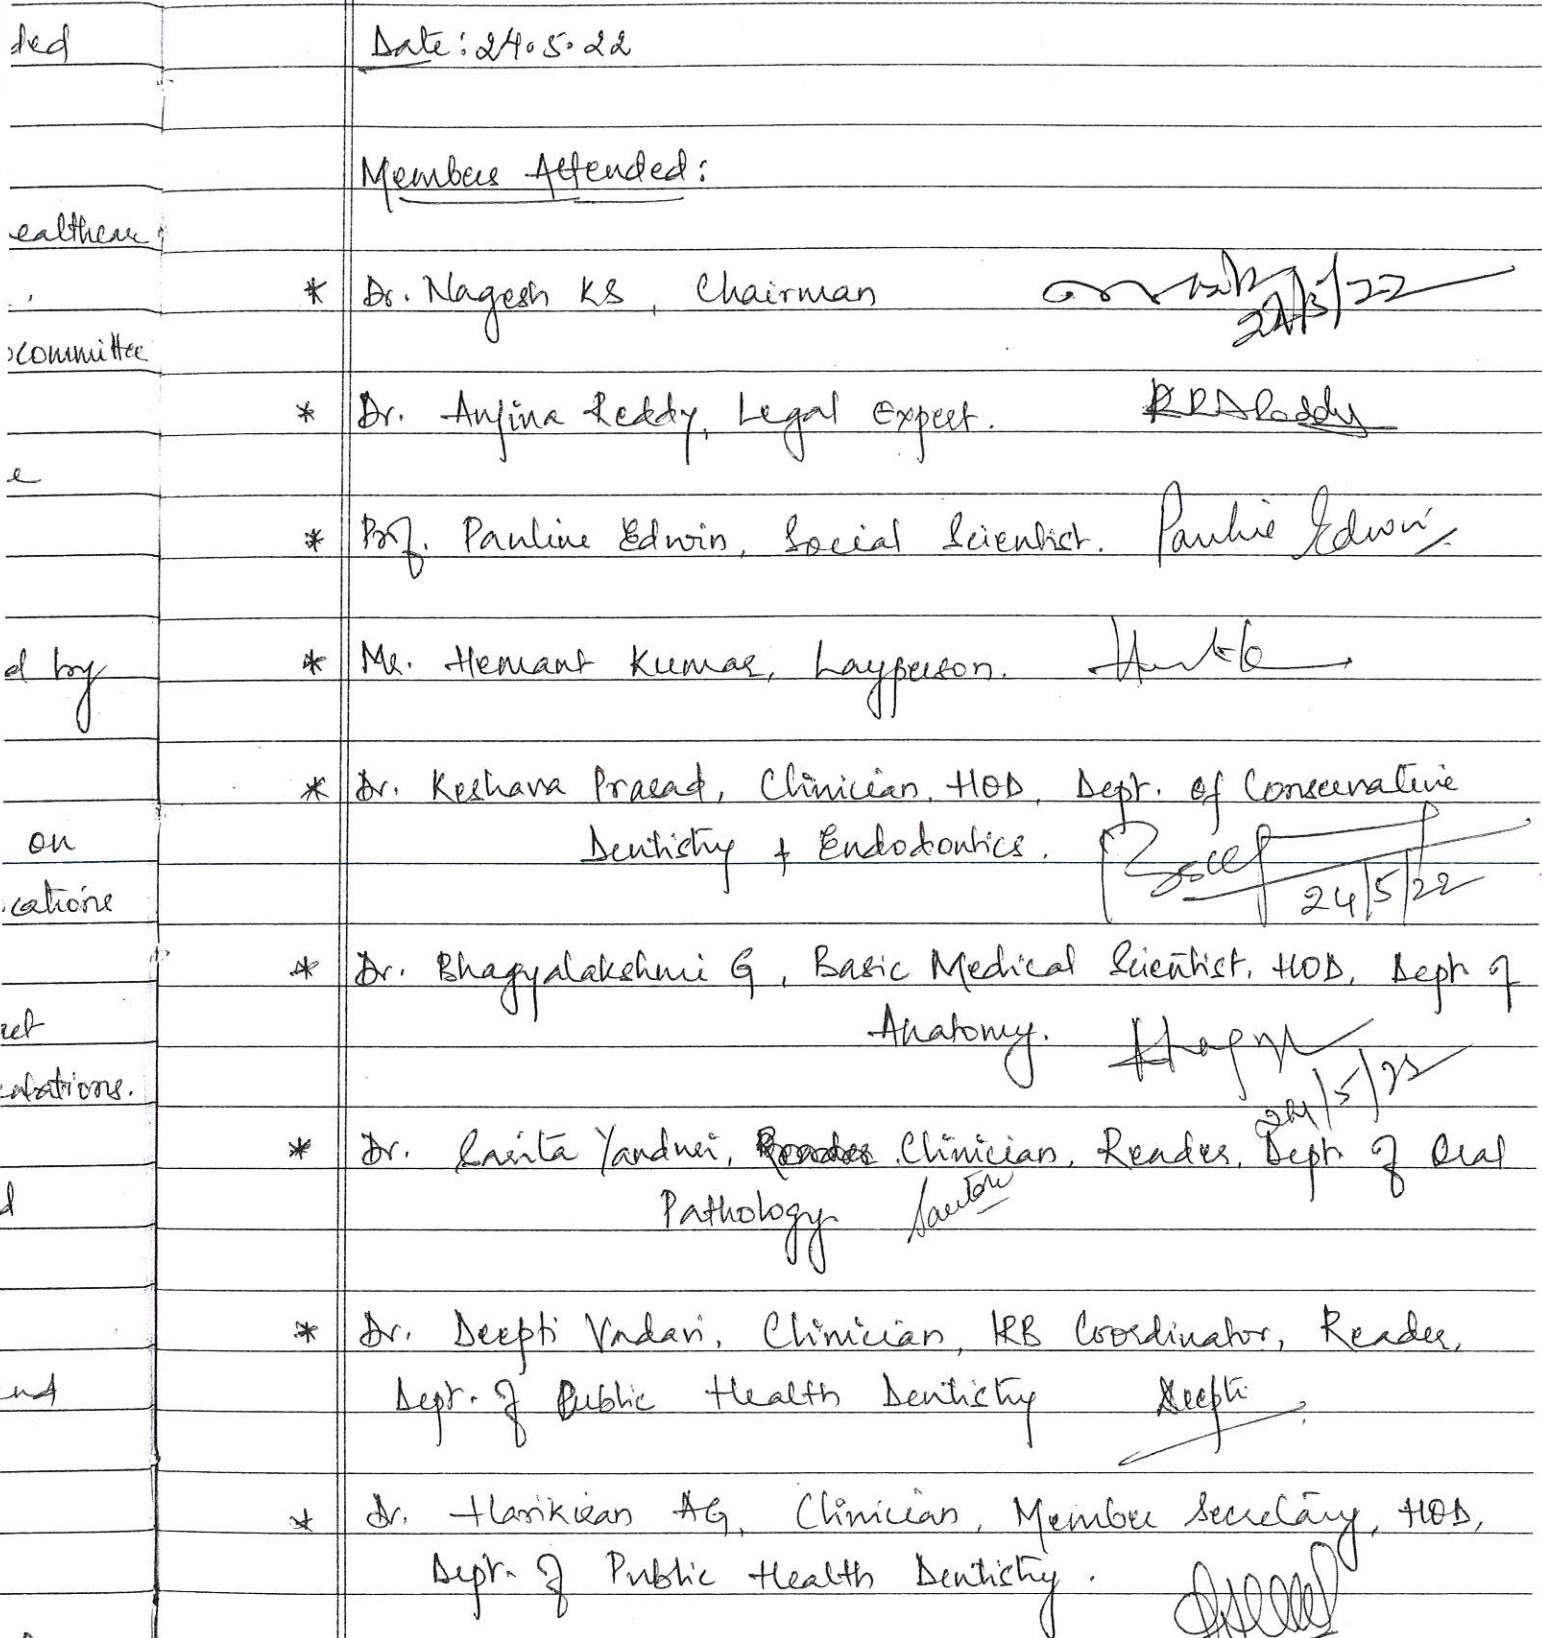 ded
ealthcare
committee
e
d by
on
cations
ret
entations.
d
and
Date: 24.5.22
Members Attended:
* Dr. Nagesh KS, Chairman
24/5/22
* Dr. Anjina Reddy, Legal Expert. Reddy
* Prof. Pauline Edwin, Social Scientist. Pauline Edwin
* Mr. Hemant Kumar, Layperson.
* Dr. Keshava Prasad, Clinician, HOD, Dept. of Conservative
Dentistry + Endodontics.
24/5/22
* Dr. Bhagyalakshmi G, Basic Medical Scientist, HOD, Dept of
Anatomy.
24/5/22
* Dr. Sarita Yanduri, Clinician, Reader, Dept. of Oral
Pathology
* Dr. Deepti Vadavi, Clinician, IRB Coordinator, Reader,
Dept. of Public Health Dentistry Deepti
* Dr. Harikiran AG, Clinician, Member Secretary, HOD,
Dept. of Public Health Dentistry.